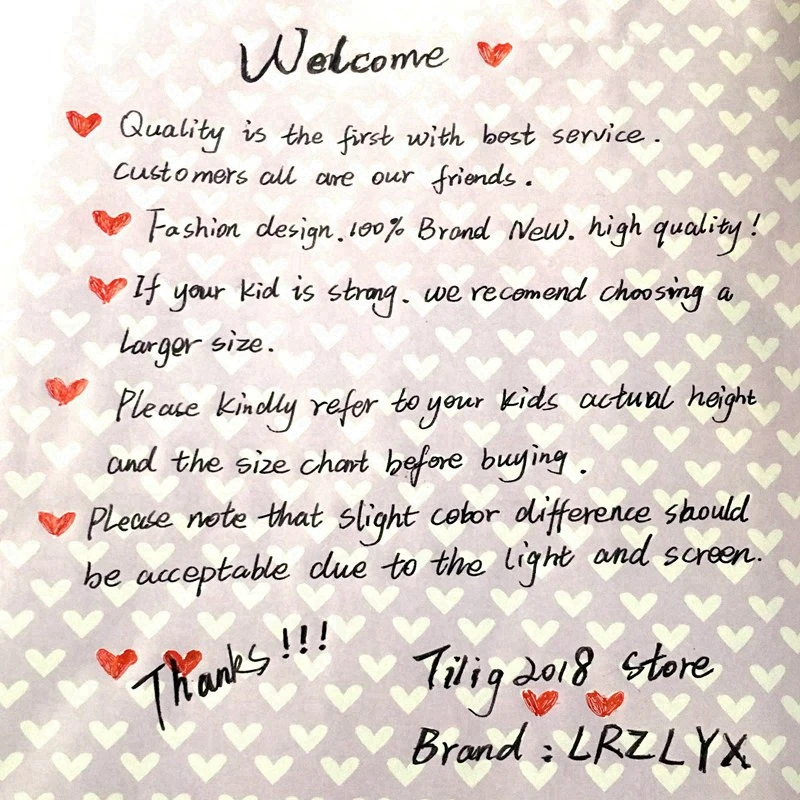 Welcome
Quality is the first with best service.
Customers all are our friends.
Fashion design. 100% Brand New. high quality!
If your kid is strong. we recomend choosing a
larger size.
Please kindly refer to your kids actual height
and the size chart before buying.
Please note that slight color difference should
be acceptable due to the light and screen.
Thanks!!!
Tilig2018 Store
Brand: LRZLYX